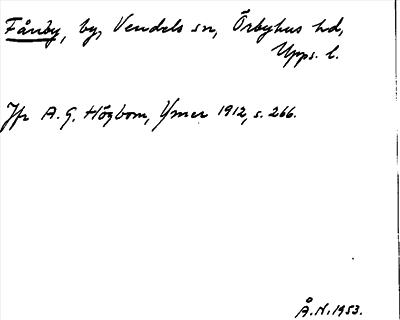 Fånby, by, Vendels sn, Örbyhus hd,
Upps. l.
Jfr A. G. Högbom, Ymer 1912, s. 266.
Å. N. 1953.